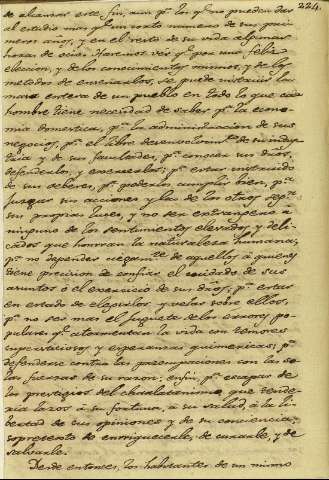 224.
de alcansar este fin, aun pª los qᵉ no pueden dar
al estudio mas qᵉ un corto numero de sus primeros años, y en el resto de su vida algunas
horas de ocio. Haremos veér qᵉ por una feliz
eleccion, y de los conocimientos mismos, y de los
metodos de enseñarlos, se puede instruir la
masa entera de un pueblo en todo lo que cada
hombre tiene necesidad de saber pª la economia domestica, pª la administracion de sus
negocios, pª el libre desenvolvimtᵒ de su industria y de sus facultades, pª conocer sus dros,
defenderlos, y exercerlos; pª estar instruido
de sus deberes, pª poderlos cumplir bien, pª
juzgar sus acciones y las de los otros segⁿ
sus propias luces, y no ser extrangero a
ninguno de los sentimientos elevados y delicados que honran la naturaleza humana;
pª no depender ciegamᵗᵉ de aquellos á quienes
tiene precision de confiar el cuidado de sus
asuntos ó el exercicio de sus dros; pª estar
en estado de elegirlos y velar sobre ellos,
pª no ser mas el juguete de los errores populares qᵉ atormentan la vida con temores
supersticiosos y esperanzas quimericas; pª
defenderse contra las preocupaciones con las solas fuerzas de su razon; enfin, pª escapar de
los prestigios del charlatanismo que tenderia lazos á su fortuna, a su salud, á la libertad de sus opiniones y de su conciencia,
sopretexto de enriquecerle, de curarle, y de
salvarle.
Desde entonces, los habitantes de un mismo